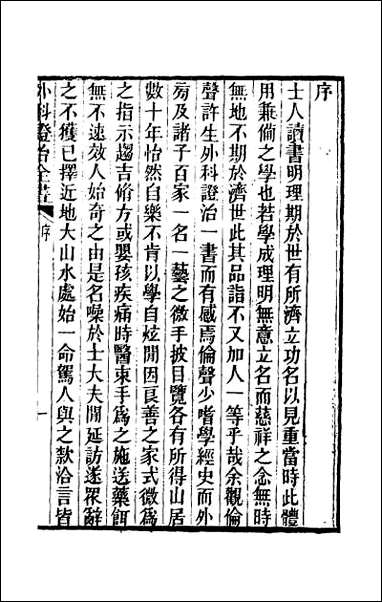 序
士人讀書明理期於世有所濟立功名以見重當時此體
用兼備之學也若學成理明無意立名而慈祥之念無時
無地不期於濟世此其品詣不又加人一等乎哉余觀倫
聲許生外科證治一書而有感焉倫聲少嗜學經史而外
旁及諸子百家一名一藝之微手披目覽各有所得山居
數十年怡然自樂不肯以學自炫閒因良善之家式微為
之指示趨吉脩方或嬰孩疾痛時醫束手為之施送藥餌
無不速效人始奇之由是名噪於士大夫閒延訪遂眾辭
之不獲已擇近地大山水處始一命駕人與之款洽言皆
外科證治全書 序 一